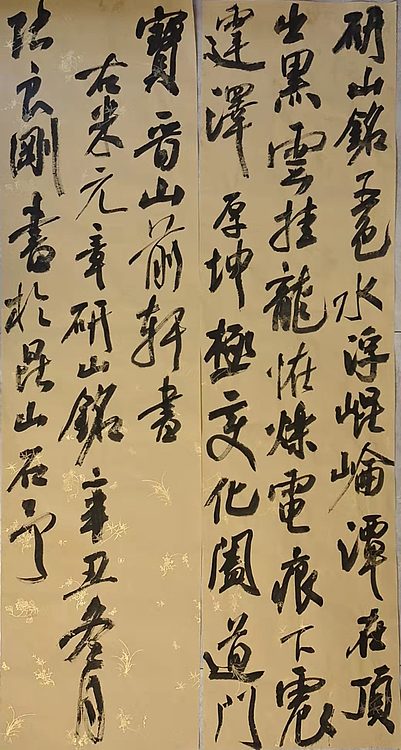 研山銘五色水浮崐崘潭在頂
出黑雲挂龍怪爍電痕下震
霆澤厚坤極变化闔道門
寶晉山前軒書
右米元章研山銘辛丑冬月
良剛書於昆山石